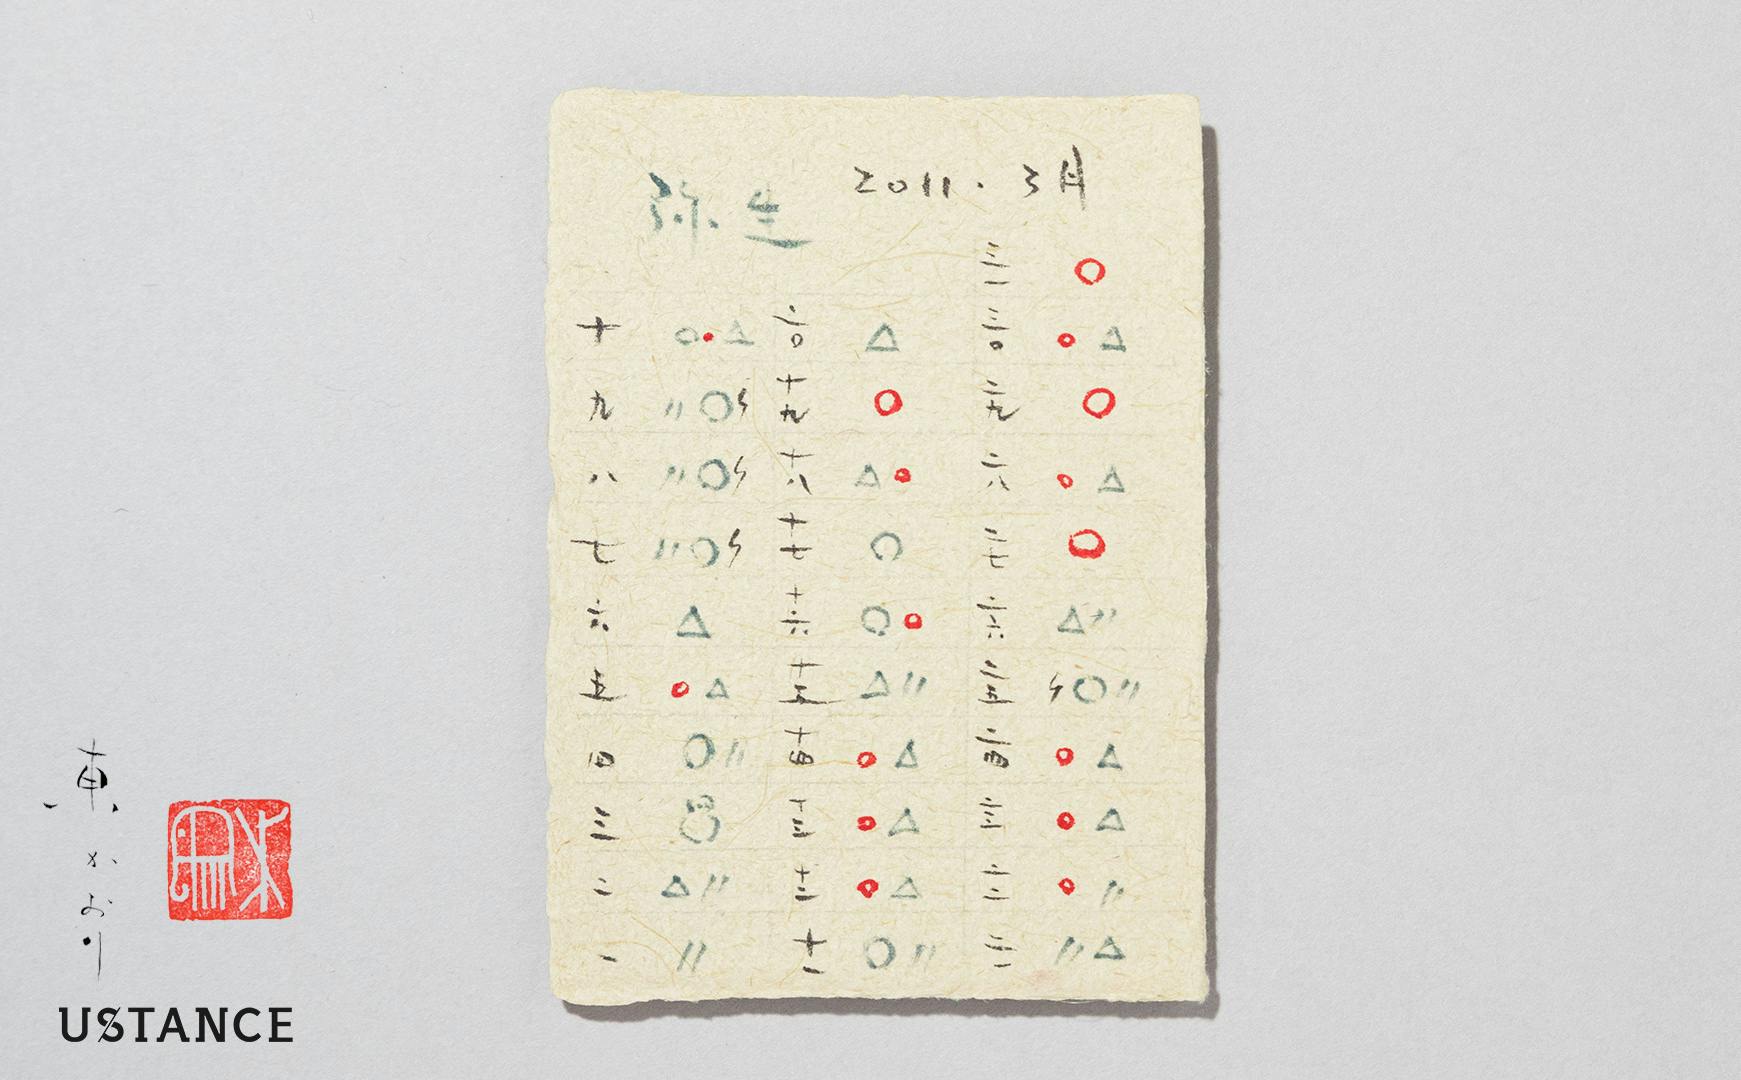 弥生
2011.3月
三一
十 二〇 三〇
九 十九 二九
八 十八 二八
七 十七 二七
六 十六 二六
五 十五 二五
四 十四 二四
三 十三 二三
二 十二 二二
一 十一 二一
東かおり
USTANCE